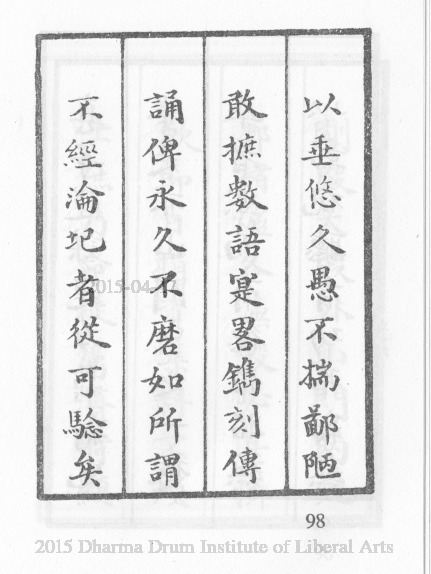 以垂悠久愚不揣鄙陋
敢摭數語寔畧鐫刻傳
誦俾永久不磨如所謂
不經淪圮者從可驗矣
98
2015 Dharma Drum Institute of Liberal Arts